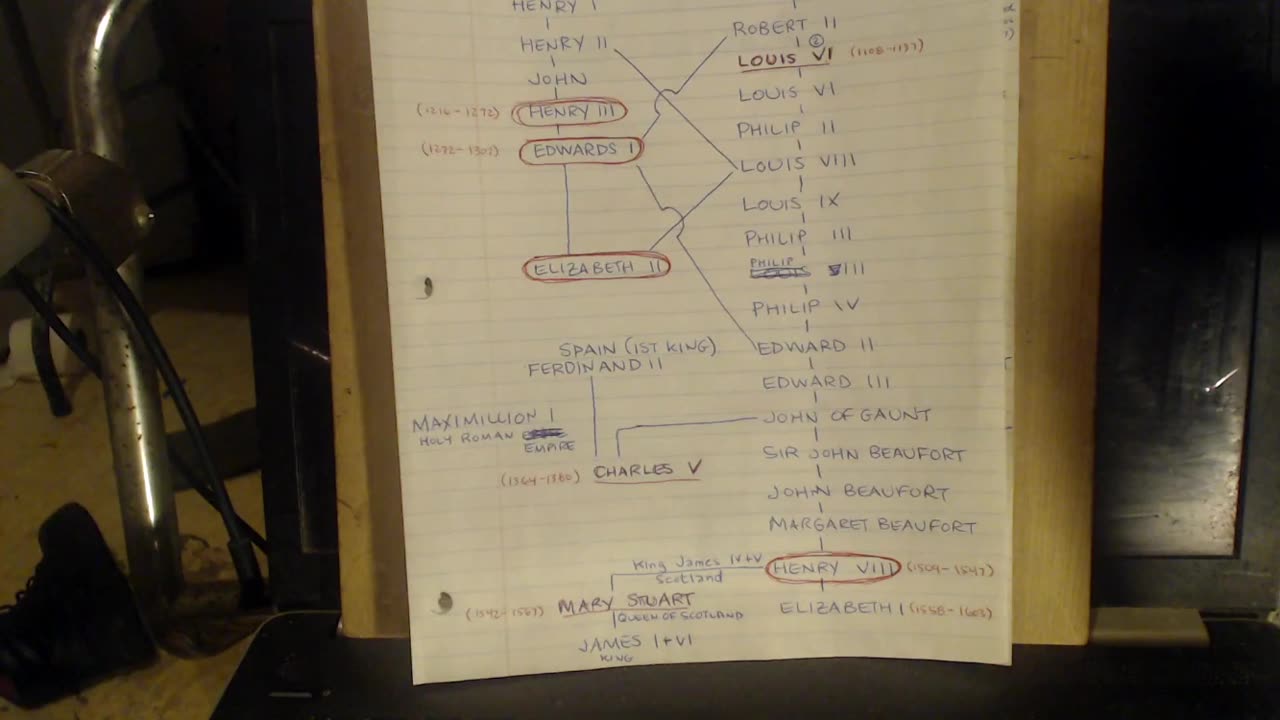 HENRY I
HENRY II
JOHN
(1216-1272) HENRY III
(1272-1307) EDWARDS I
ELIZABETH II
ROBERT II
2
LOUIS VI (1108-1137)
LOUIS VI
PHILIP II
LOUIS VIII
LOUIS IX
PHILIP III
PHILIP III
PHILIP IV
EDWARD II
EDWARD III
JOHN OF GAUNT
SIR JOHN BEAUFORT
JOHN BEAUFORT
MARGARET BEAUFORT
HENRY VIII (1509-1547)
ELIZABETH I (1558-1603)
SPAIN (1ST KING)
FERDINAND II
MAXIMILLION I
HOLY ROMAN
EMPIRE
(1364-1380) CHARLES V
King James IV+V
Scotland
(1542-1567) MARY STUART
QUEEN OF SCOTLAND
JAMES I+VI
KING